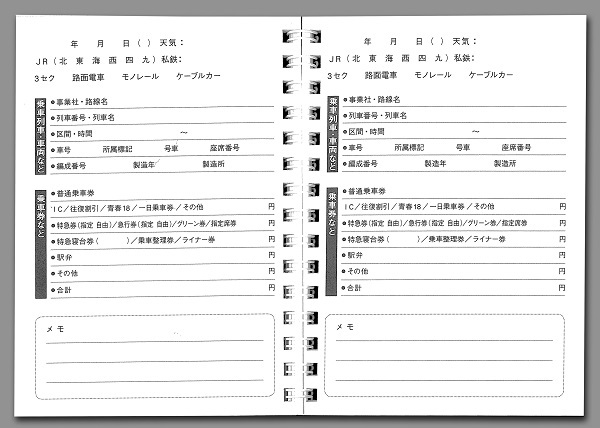 年 月 日 ( ) 天気：
JR ( 北 東 海 西 四 九 ) 私鉄：
3セク 路面電車 モノレール ケーブルカー
乗車列車・車両など
●事業社・路線名
●列車番号・列車名
●区間・時間 ～
●車号 所属標記 号車 座席番号
●編成番号 製造年 製造所
乗車券など
●普通乗車券
IC／往復割引／青春18／一日乗車券／その他 円
●特急券(指定 自由)／急行券(指定 自由)／グリーン券／指定席券
●特急寝台券( )／乗車整理券／ライナー券 円
●駅弁 円
●その他 円
●合計 円
メモ
年 月 日 ( ) 天気：
JR ( 北 東 海 西 四 九 ) 私鉄：
3セク 路面電車 モノレール ケーブルカー
乗車列車・車両など
●事業社・路線名
●列車番号・列車名
●区間・時間 ～
●車号 所属標記 号車 座席番号
●編成番号 製造年 製造所
乗車券など
●普通乗車券
IC／往復割引／青春18／一日乗車券／その他 円
●特急券(指定 自由)／急行券(指定 自由)／グリーン券／指定席券
●特急寝台券( )／乗車整理券／ライナー券 円
●駅弁 円
●その他 円
●合計 円
メモ